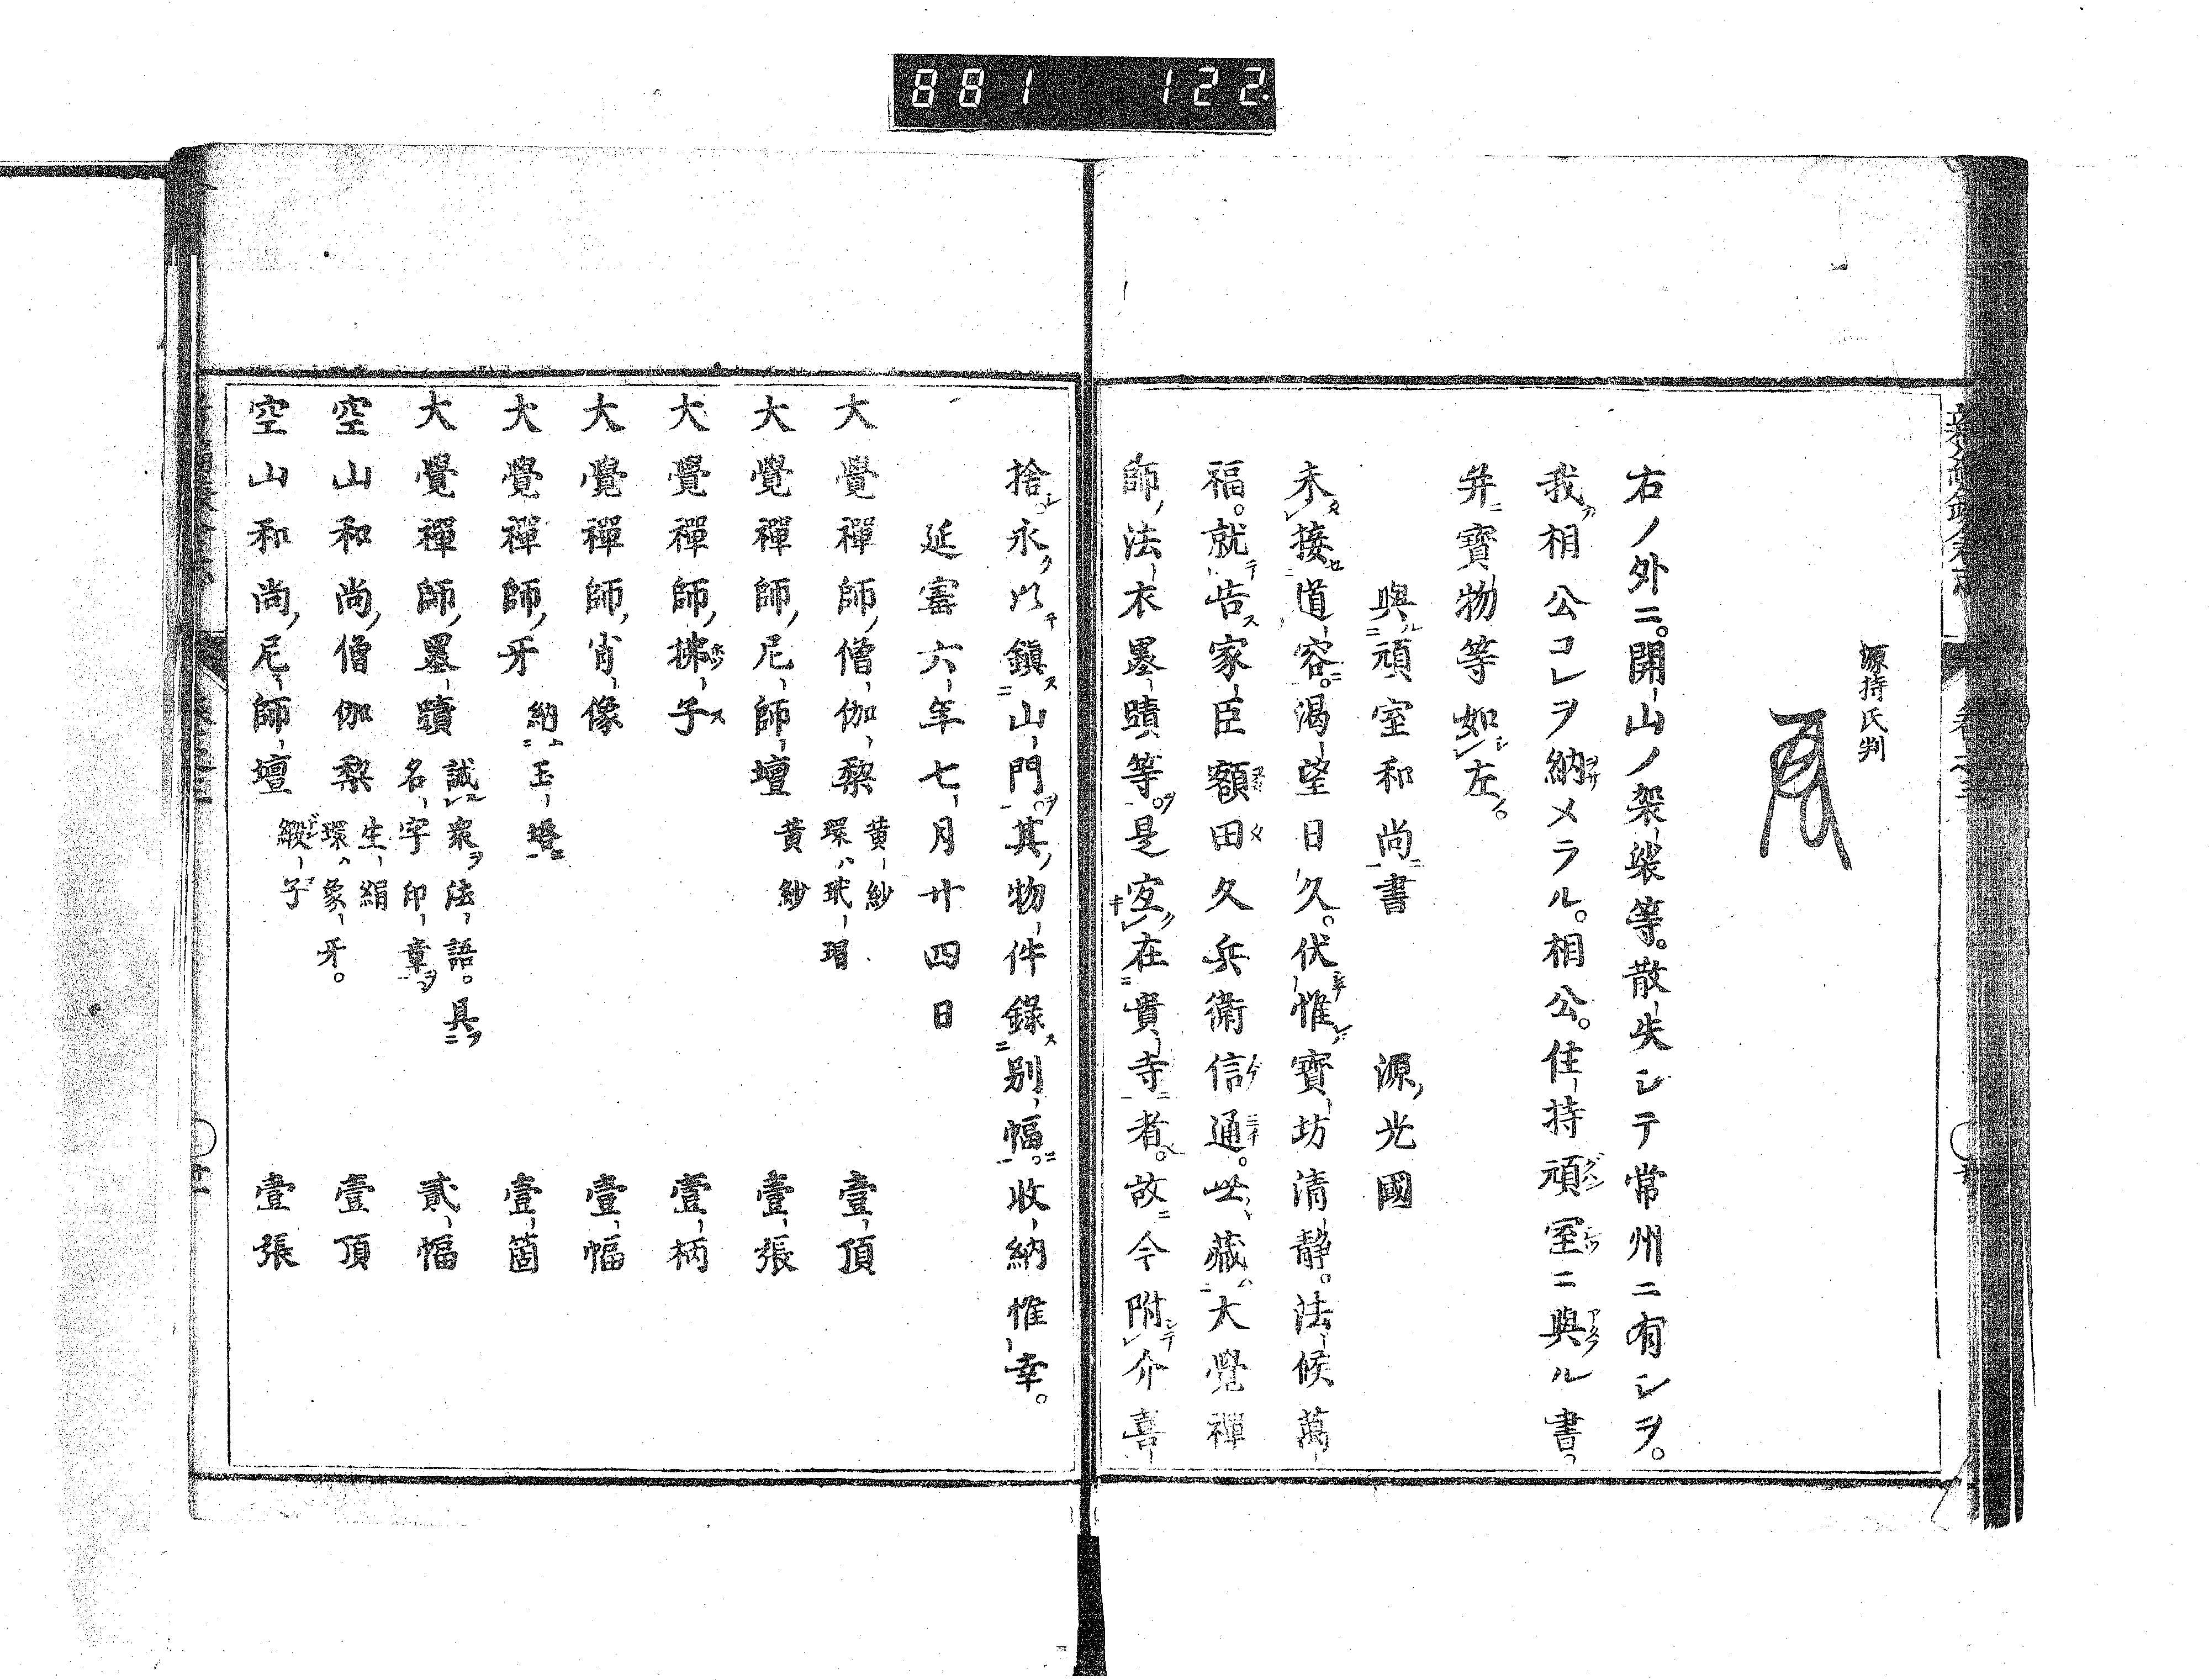 881 122.
源持氏判
右ノ外ニ。開山ノ袈裟等。散失シテ常州ニ有シヲ。
我相公コレヲ納メラル。相公。住持頑室ニ與ル書。
并寶物等如左。
與頑室和尚書 源光國
未接道容。渴望日久。伏惟寶坊清靜。法候萬
福。就告家臣額田久兵衞信通。世藏大覺禪
師法衣墨蹟等。是宐在貴寺者。故今附介喜
捨永以鎭山門。其物件錄別幅。收納惟幸。
延寶六年七月廿四日
大覺禪師僧伽梨 黄紗環ハ玳瑁 壹頂
大覺禪師尼師壇 黄紗 壹張
大覺禪師拂子 壹柄
大覺禪師肖像 壹幅
大覺禪師牙 納玉塔 壹箇
大覺禪師墨蹟 誡衆法語。具名字印章 貳幅
空山和尚僧伽梨 生絹環ハ象牙。 壹頂
空山和尚尼師壇 緞子 壹張